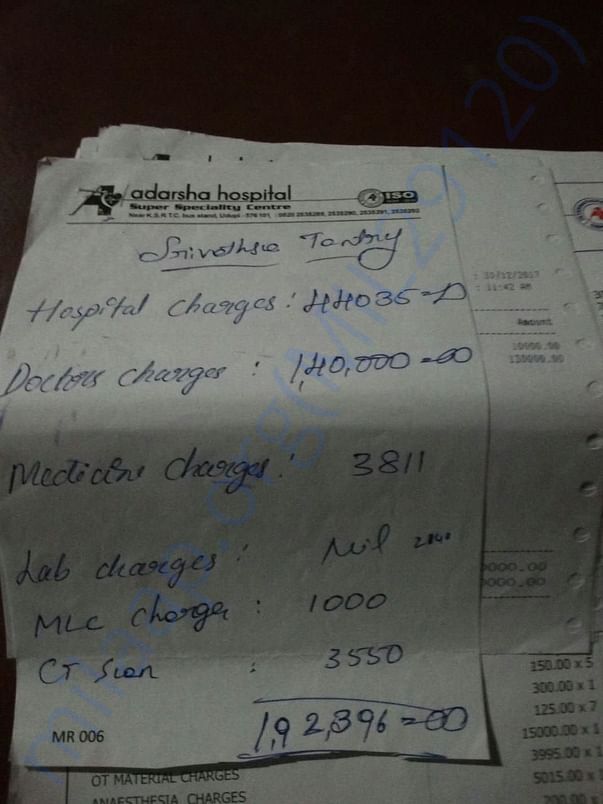 adarsha hospital
Super Speciality Centre
ISO
Near K.S.R.T.C. bus stand, Udupi - 576 101, : 0820 2535289, 2535290, 2535291, 2535292
Srivathsa Tantry
: 30/12/2017
: 11:42 AM
Hospital Charges : 44035=
Amount
10000.00
130000.00
Doctors charges : 1,40,000=00
Medicine Charges : 3811
Lab charges : Nil
0000.00
0000.00
MLC Charge : 1000
CT Scan : 3550
150.00 x 5
300.00 x 1
125.00 x 7
1,92,396=00
MR 006
15000.00 x 1
3995.00 x 1
OT MATERIAL CHARGES
5015.00 x 1
ANAESTHESIA CHARGES
200.00 x
milaap.org(MIL29120)